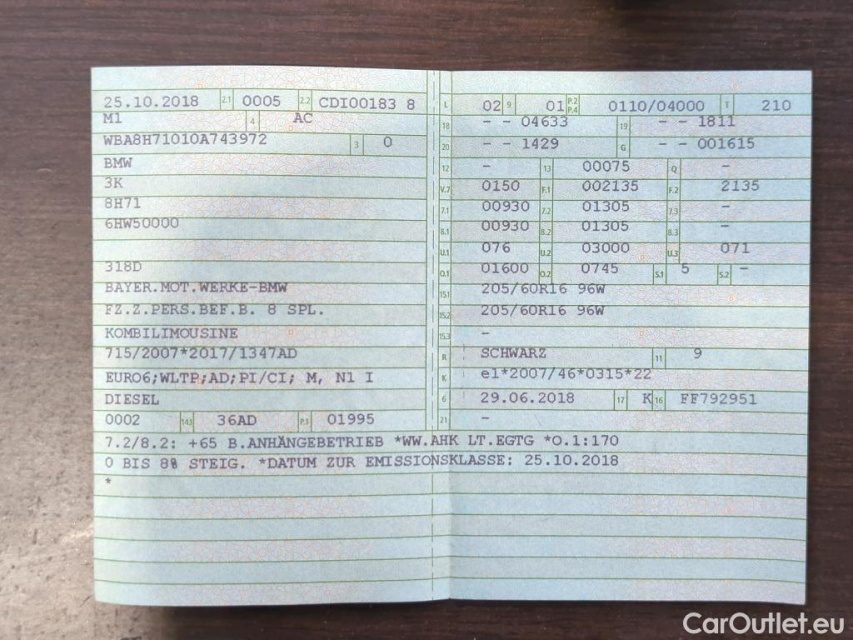 25.10.2018 2.1 0005 2.2 CDI00183 8
M1 4 AC
WBA8H71010A743972 3 0
BMW
3K
8H71
6HW50000
318D
BAYER.MOT.WERKE-BMW
FZ.Z.PERS.BEF.B. 8 SPL.
KOMBILIMOUSINE
715/2007*2017/1347AD
EURO6;WLTP;AD;PI/CI; M, N1 I
DIESEL
0002 14.1 36AD P.3 01995
L 02 9 01 P.2 P.4 0110/04000 T 210
18 - - 04633 19 - - 1811
20 - - 1429 G - - 001615
12 - 13 00075 Q -
V.7 0150 F.1 002135 F.2 2135
7.1 00930 7.2 01305 7.3 -
8.1 00930 8.2 01305 8.3 -
U.1 076 U.2 03000 U.3 071
O.1 01600 O.2 0745 S.1 5 S.2 -
15.1 205/60R16 96W
15.2 205/60R16 96W
15.3 -
R SCHWARZ 11 9
K e1*2007/46*0315*22
6 29.06.2018 17 K 16 FF792951
21 -
7.2/8.2: +65 B.ANHÄNGEBETRIEB *WW.AHK LT.EGTG *O.1:170
0 BIS 8% STEIG. *DATUM ZUR EMISSIONSKLASSE: 25.10.2018
*
CarOutlet.eu